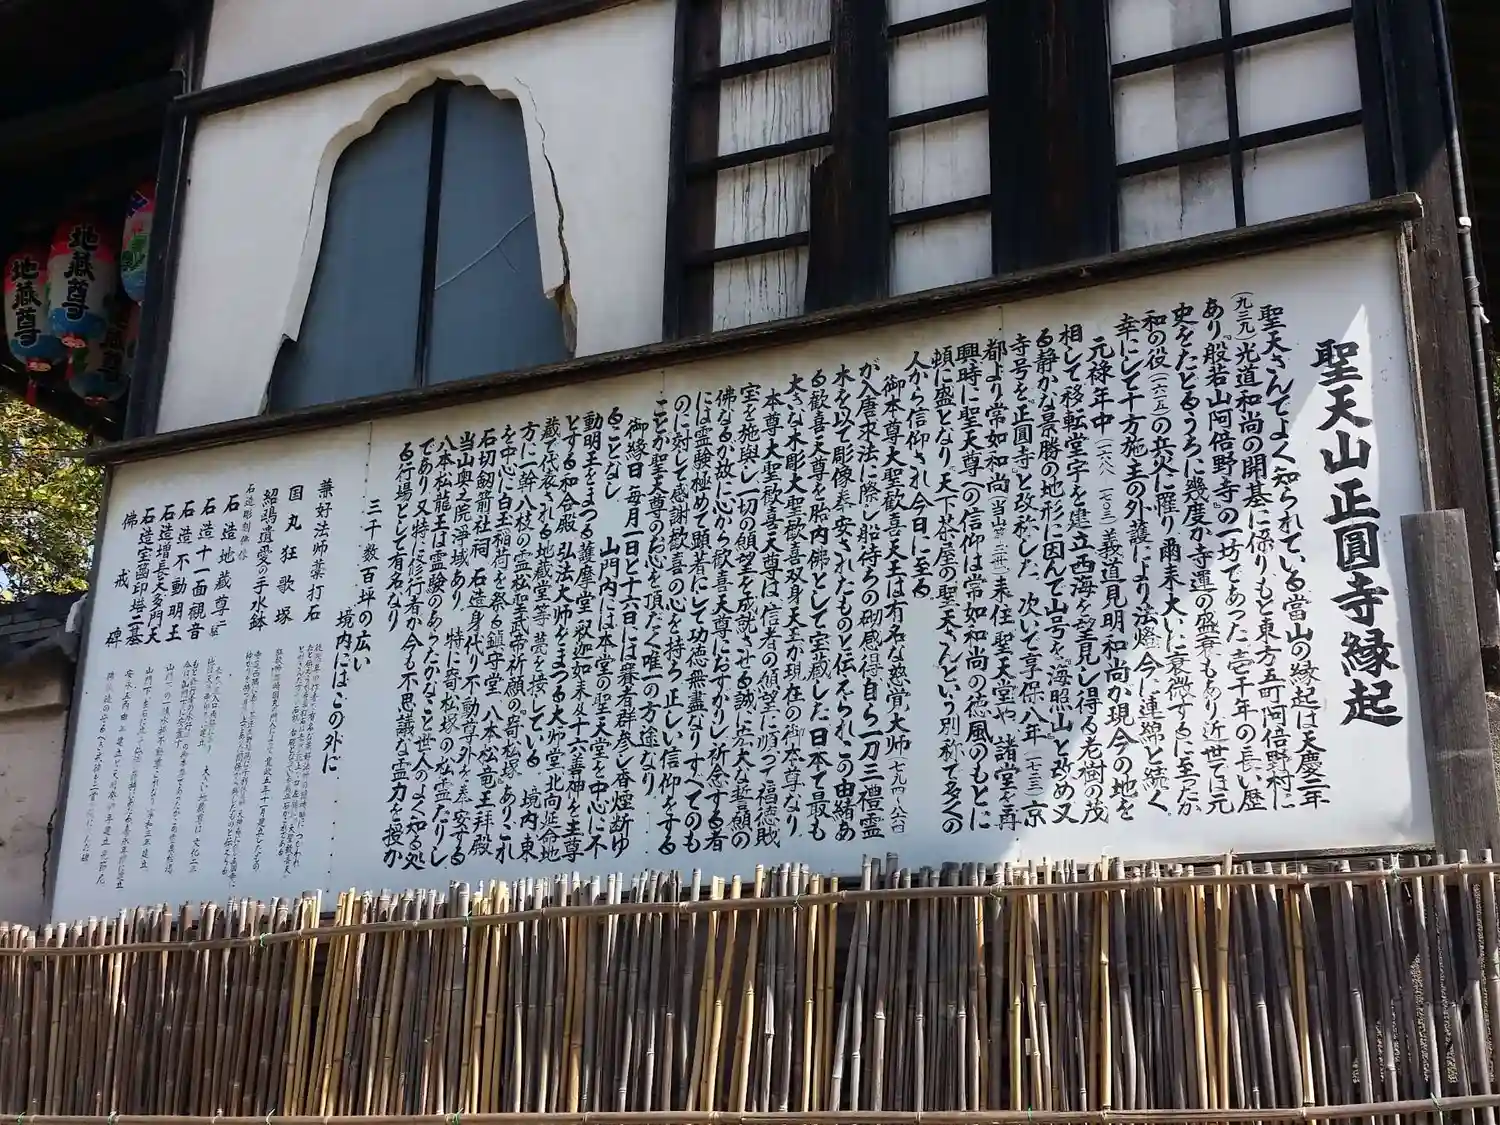 聖天山正圓寺縁起
聖天さんでよく知られている當山の縁起は天慶二年
(九三九)光道和尚の開基に係りもと東方五町阿倍野村に
あり『般若山阿倍野寺』の一坊であった 壱千年の長い歴
史をたどるうちに幾度か寺運の盛衰もあり近世では元
和の役(一六一五)の兵火に罹り爾来大いに衰微するに至ったが
幸にして十方施主の外護により法燈 今に連綿と続く
元禄年中(一六八八ー一七〇三)義道見明和尚が現今の地を
相して移転堂宇を建立西海を望見し得る老樹の茂
る静かな景勝の地形に因んで山号を『海照山』と改め又
寺号を『正圓寺』と改称した 次いで享保八年(一七二三)京
都より常如和尚(当山第二世)来住 聖天堂や 諸堂を再
興時に聖天尊への信仰は常如和尚の徳風のもとに
頓に盛となり 天下茶屋の聖天さんという別称で多くの
人から信仰され 今日に至る
御本尊大聖歓喜天王は有名な慈覚大師(七九四ー八六四)
が入唐求法に際し船待ちの砌感得 自ら一刀三禮霊
木を以て彫像奉安されたものと伝えられ この由緒あ
る歓喜天尊を胎内佛として宝蔵した日本で最も
大きな木彫大聖歓喜双身天王が現在の御本尊なり
本尊大聖歓喜天尊は 信者の願望に順って福徳戝
宝を施與し 一切の願望を成就させる誠に宏大な誓願の
佛なるが故に心から歓喜天尊におすがりし祈念する者
には霊験極めて顕著にして功徳無盡なり すべてのも
のに対して感謝歓喜の心を持ち 正しい信仰をする
ことが聖天尊のお心を頂だく唯一の方途なり
御縁日 毎月一日と十六日には賽者群参し香煙断ゆ
ることなし 山門内には本堂の聖天堂を中心に不
動明王をまつる護摩堂 釈迦如来及十六善神を主尊
とする和合殿 弘法大師をまつる大師堂 北向延命地
蔵で代表される地蔵堂等 甍を接している 境内東
方に一幹八枝の霊松 聖武帝祈願の『寄松塚』あり これ
を中心に白玉稲荷を祭る鎮守堂 八本松竜王拝殿
石切劔箭社祠 石造身代り不動尊 外を奉安する
当山奥之院浄域あり 特に寄松塚の松の霊たりし
八本松龍王は霊験のあらたかなこと世人のよく知る処
であり又特に修行者が今も不思議な霊力を授か
る行場として有名なり
三千数百坪の広い
境内にはこの外に
兼好法師藁打石
国丸狂歌塚
紹鴎遺愛の手水鉢
石造彫刻佛像
石造地蔵尊二躯
石造十一面観音
石造不動明王
石造増長天多聞天
石造宝篋印塔二基
佛戒碑
地蔵尊
地蔵尊